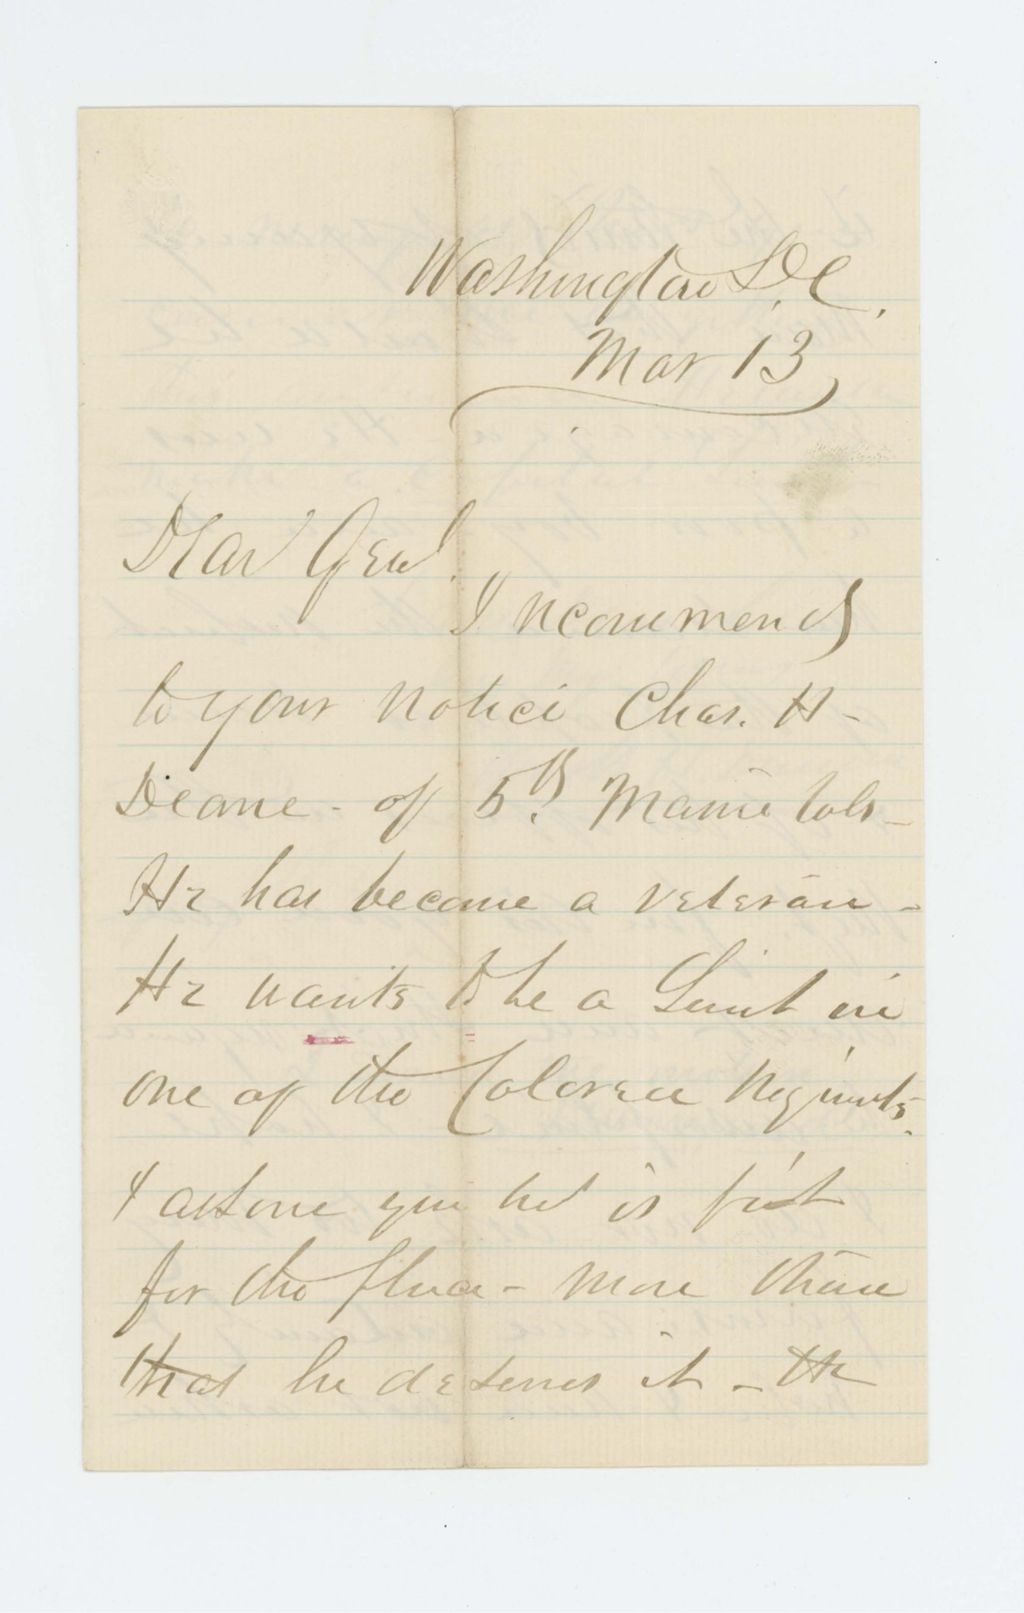 Washington D.C.
Mar 13
Dear Genl.
I recommend
to your notice Chas. H-
Deane - of 5th. Maine Vols -
He has become a veteran -
He wants to be a Lieut in
one of the Colored Regimts.
I assure you he is fit
for the place - more than
that he deserves it - He